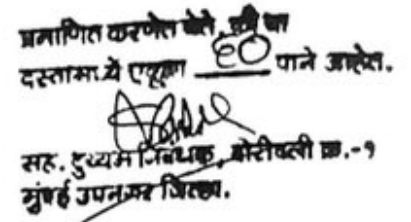 प्रमाणित करणेत येते, की या
दस्तामध्ये एकूण ६० पाने आहेत.
सह. दुय्यम निबंधक, बोरीवली क्र.-१
मुंबई उपनगर जिल्हा.